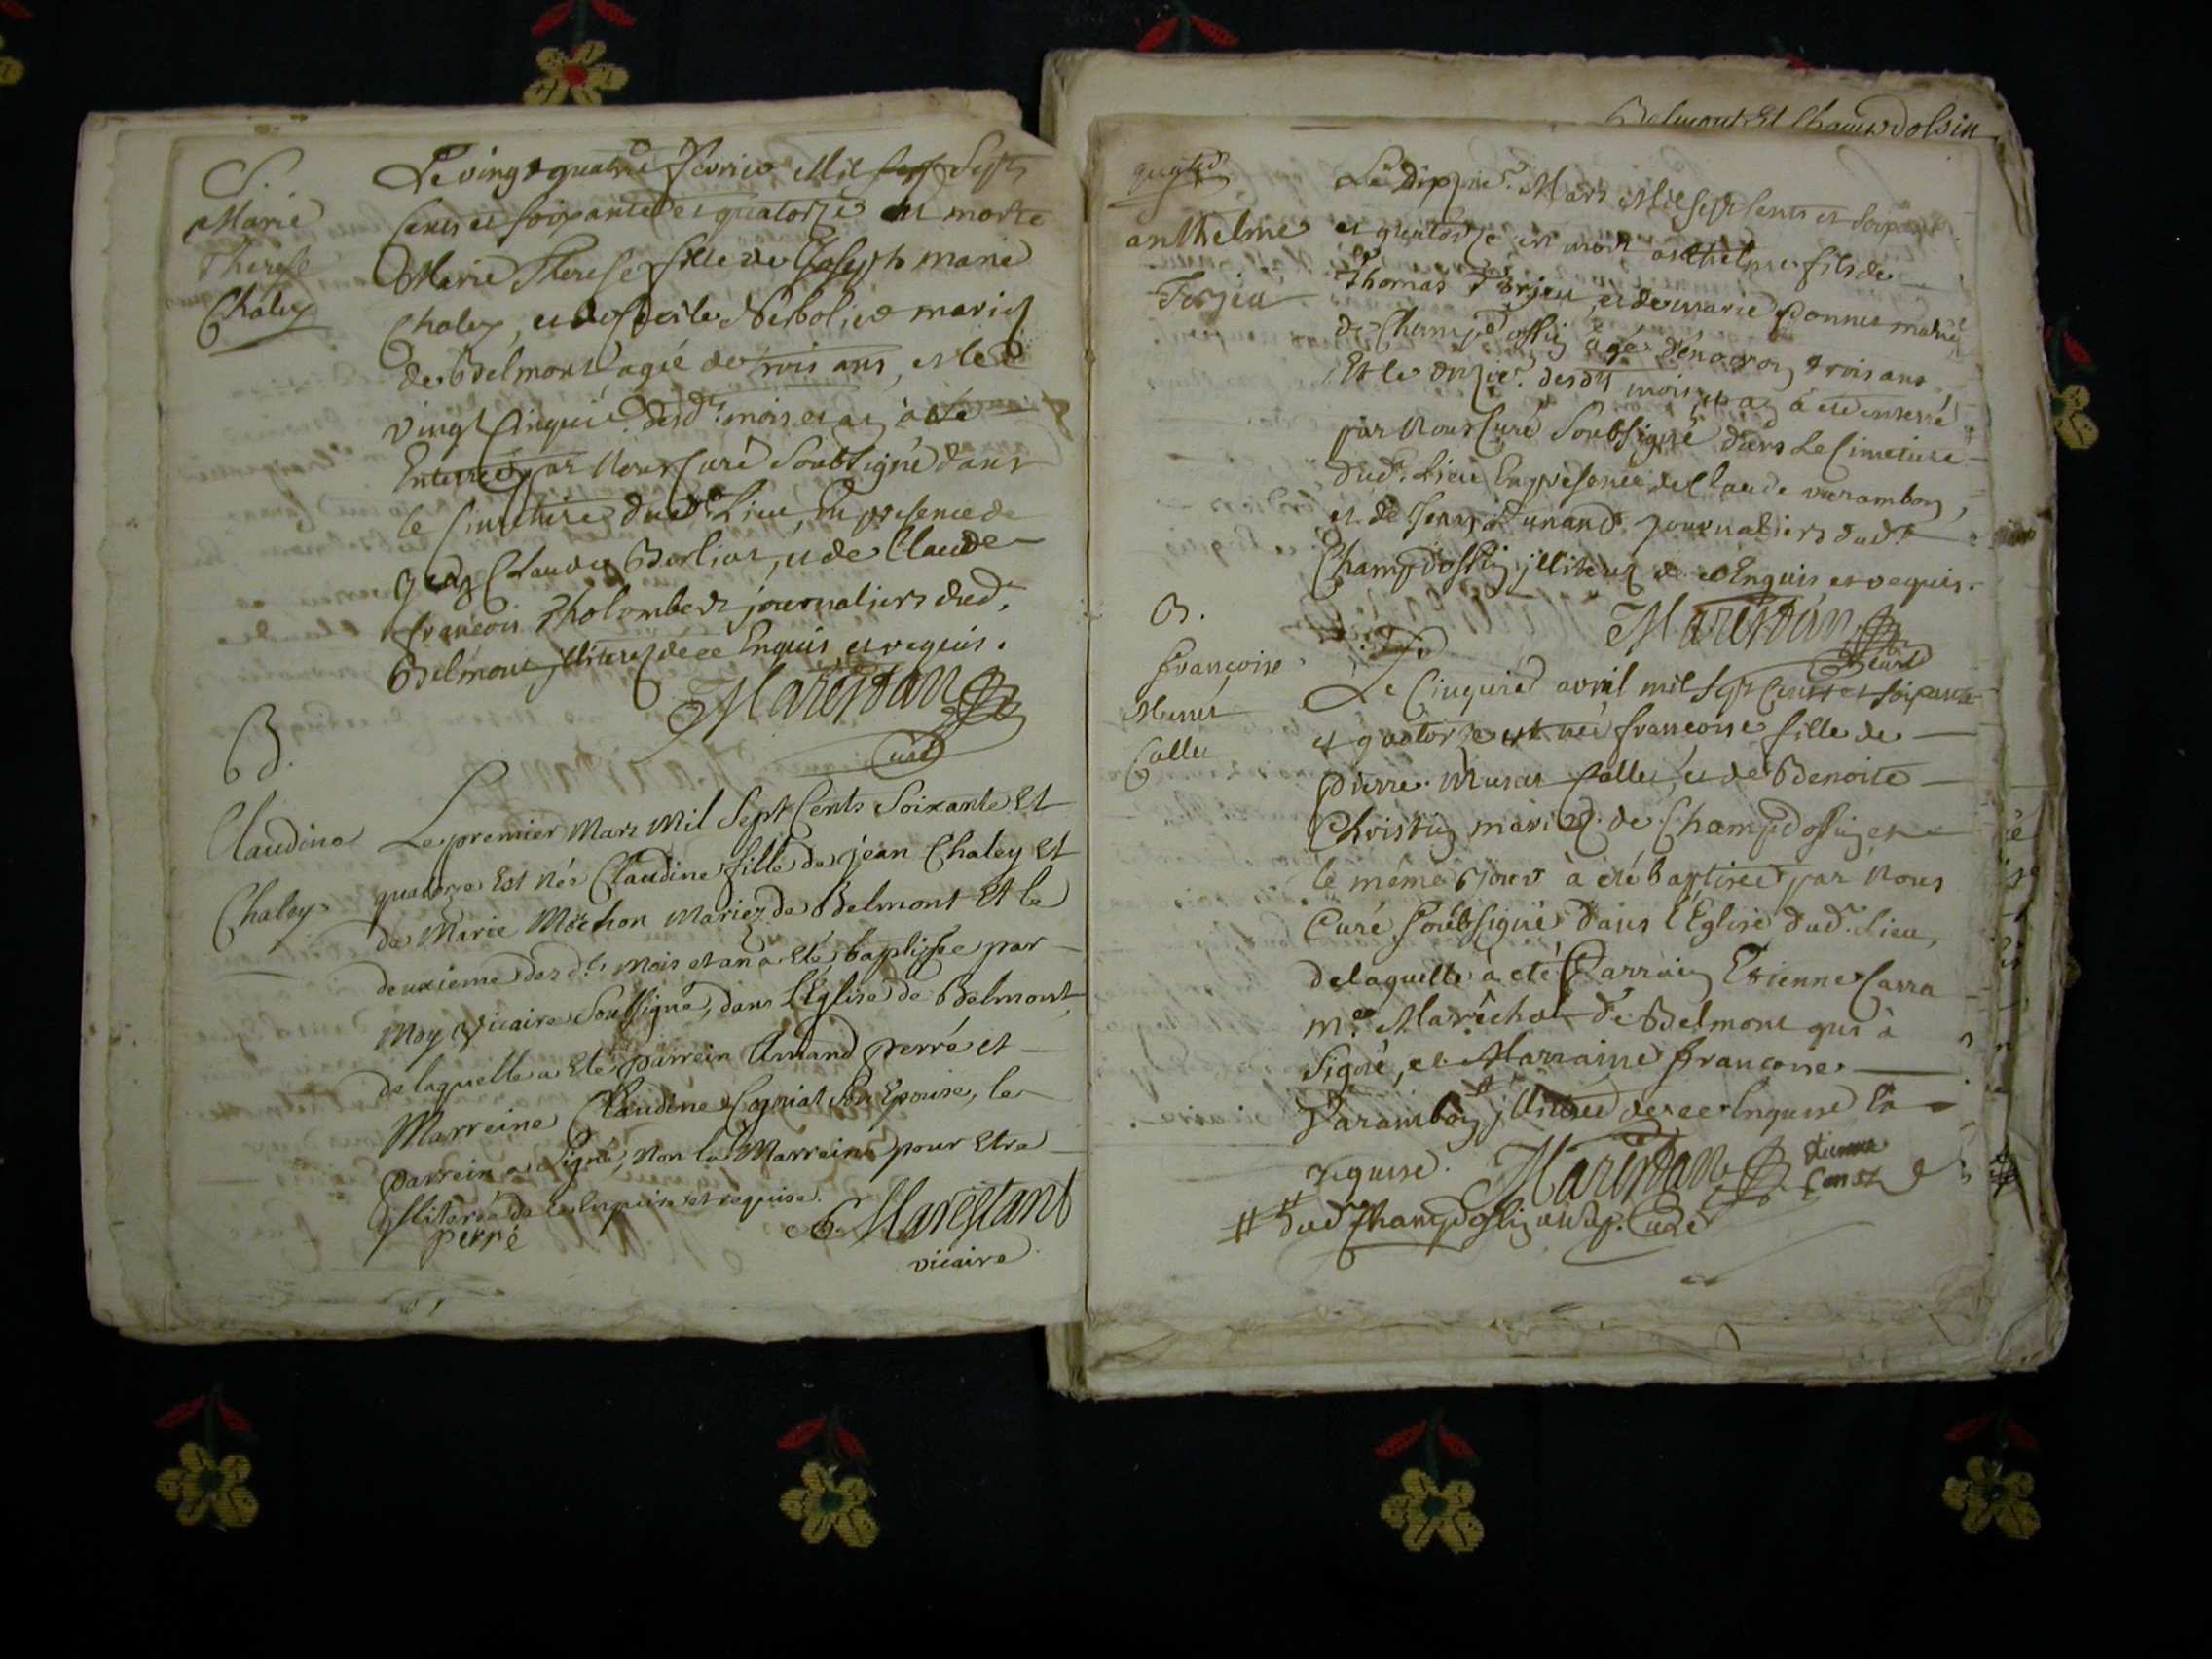 S.
Marie
Therese
Chaley
Le vingt quatre fevrier Mil Sept
Cents et soixante et quatorze est morte
Marie Therese fille de Joseph marie
Chaley, et de
de Belmont agié de trois ans, et le
vingt cinquié. desd. mois et an à été
Enterrée par Nous Curé Soubsigné dans
le Cimetiere dud. Lieu, En presence de
Claude Borliat, et de Claude
francois Tholombert journaliers dud.
Belmont illiterez de ce Enquis et requis.
Marestan
Curé
B.
Claudine
Chaley
Le premier Mars Mil Sept Cents Soixante Et
quatorze Est née Claudine fille de jean Chaley Et
de Marie Mochon Mariez de Belmont Et le
deuxieme des dts mois et an a été baptissée par
Moy Vicaire Soussigné, dans l'Église de Belmont,
de laquelle a été parrein Amand perré et
Marreine Claudine Cogniat Son Epouse, le
parrein a Signé, Non la Marreine pour Etre
illiterée de ce Enquise et requise.
perré
Marestant
vicaire
Belmont Et
anthelme
Forjeu
Le dixie. Mars Mil sept Cents et soixante
et quatorze est mort anthelme fils de
Thomas Forjeu, et de marie mariez
de Champdossin agé d'environ trois ans,
Et le onzie. desdts mois et an à été enterré
par Nous Curé Soubsigné dans Le Cimetiere
dud. Lieu En présence de Claude varambon,
et de Dunand journaliers dud.
Champdossin illiterez de ce Enquis et requis.
Marestan
Curé
B.
francoise
Munet
Collet
Le Cinquie. avril mil Sept Cents et soixante
et quatorze est née francoise fille de
Pierre Collet, et de Benoite
Christin mariez de Champdossin et
le même Jour à été baptisée par Nous
Curé Soubsigné dans l'Eglise dud. Lieu,
de laquelle à été Parrain Etienne Carra
me. Maréchal de Belmont qui à
Signé, et Marraine francoise
Varambon # illiterée de ce Enquise Et
requise.
Marestan
Etienne
# dud. Champdossin Curé